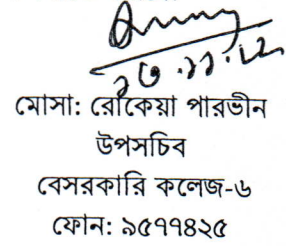 ২৩.১১.১২
মোসা: রোকেয়া পারভীন
উপসচিব
বেসরকারি কলেজ-৬
ফোন: ৯৫৭৭৪২৫